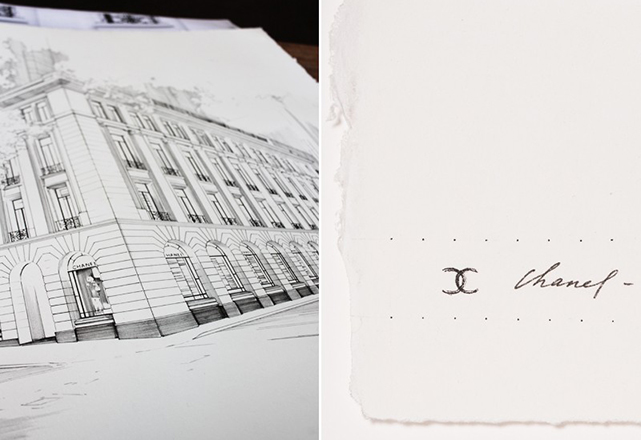 CHANEL
Chanel -